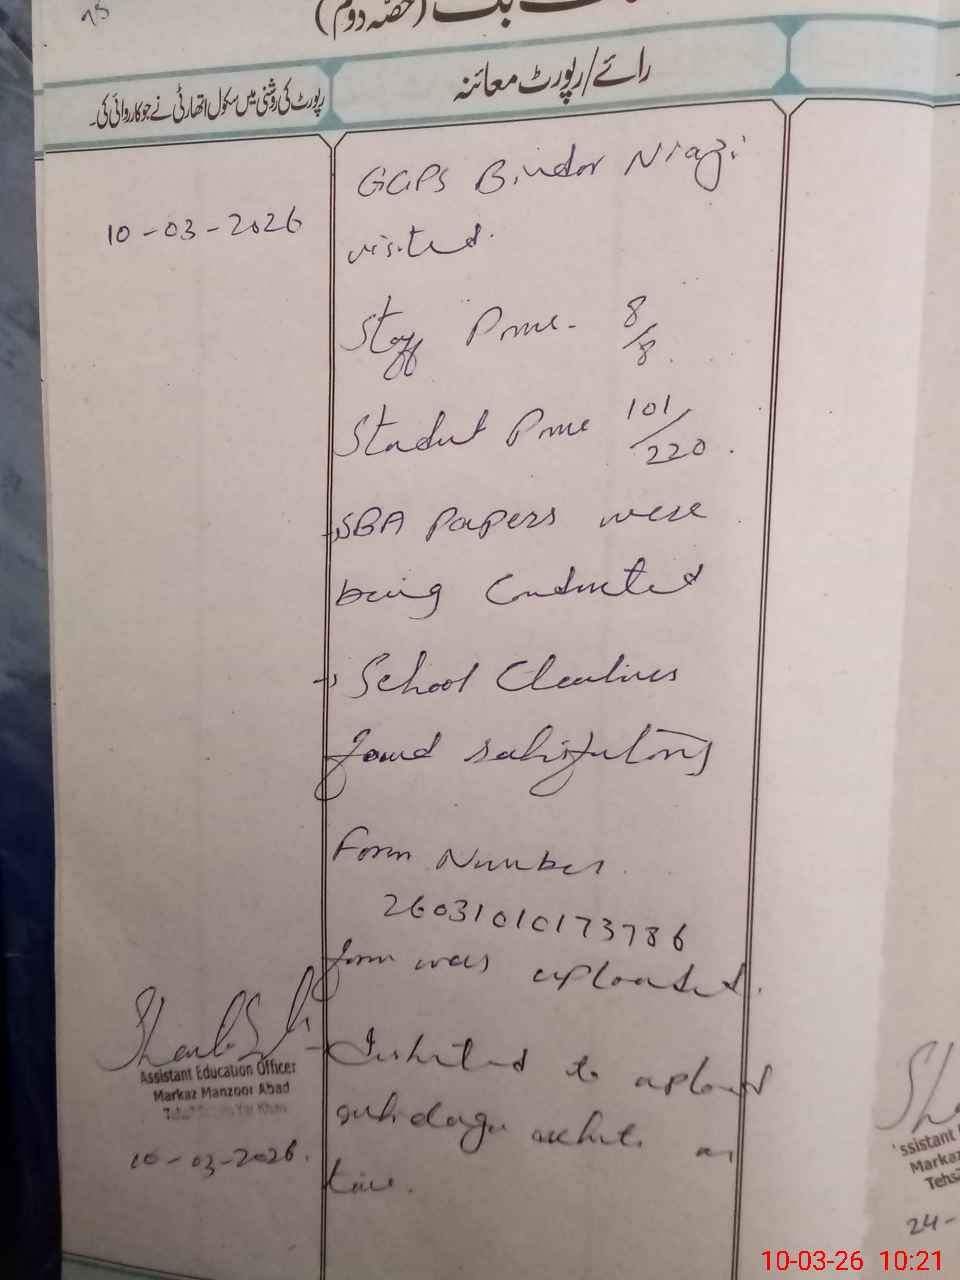 75
(حصّہ دوم)
رائے/رپورٹ معائنہ
رپورٹ کی روشنی میں سکول اتھارٹی نے جو کارروائی کی۔
10-03-2026
GGPS Bindor Niazi
visited.
Staff Prese. 8/8.
Student Prese 101/220.
SBA Papers were
being Conducted
School Cleanliness
found satisfactory
Form Number.
26031010173786
form was uploaded.
Instructed to upload
anti dengue activities on
time.
Assistant Education Officer
Markaz Manzoor Abad
Yar Khan
10-03-2026.
ssistant
Marka
Tehs
24-
10-03-26 10:21